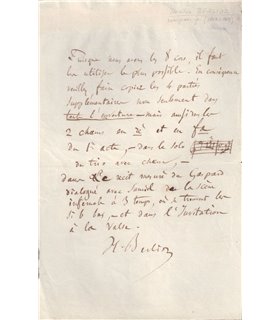 Puisque nous avons les 8 cors, il faut
les utiliser le plus possible. En conséquence
veuillez faire copier les 4 parties
supplémentaires non seulement dans
toute l'ouverture mais aussi dans
2 chœurs en ré et en fa
du 1er acte, dans le solo
du trio avec chœur,
dans le récit mesuré de Gaspard
dialogué avec Samiel de la scène
infernale à 3 temps, où se trouvent les
si b bas, et dans l'Invitation
à la valse.
H. Berlioz